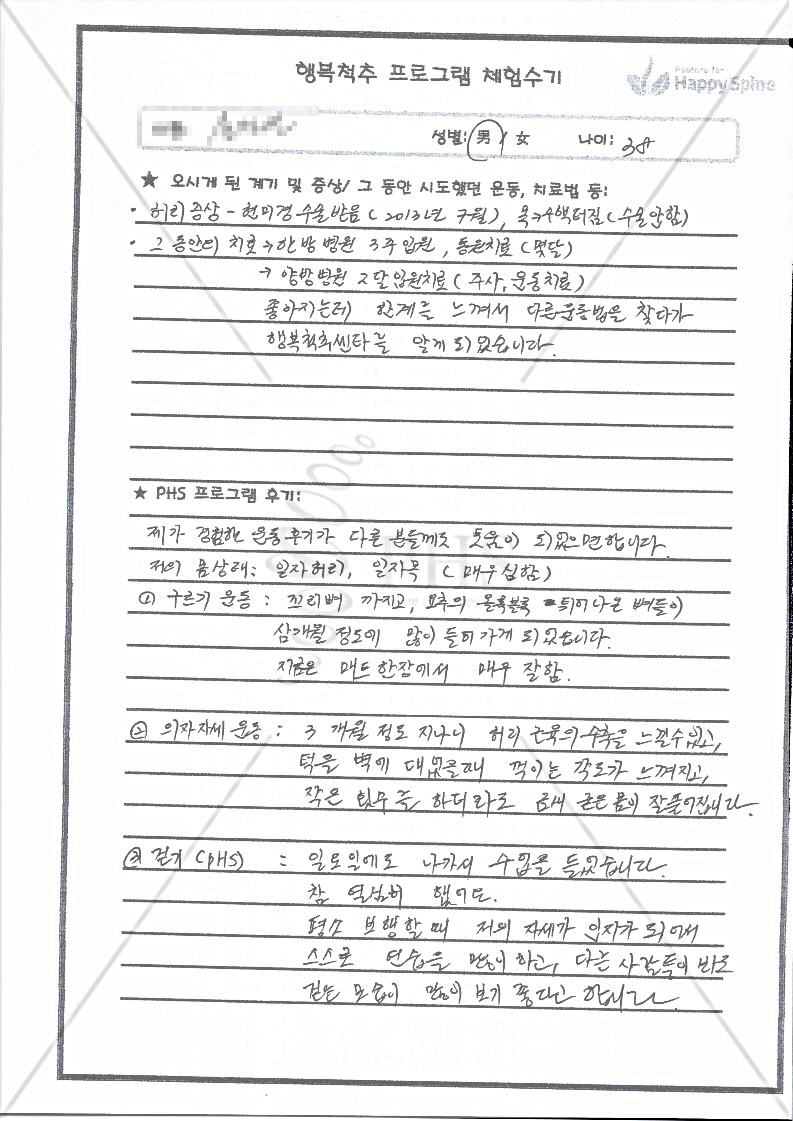 행복척추 프로그램 체험수기
Posture for
HappySpine
성별: 男 / 女 나이: 38
★ 오시게 된 계기 및 증상/ 그 동안 시도했던 운동, 치료법 등:
· 허리증상 - 현미경수술받음 (2013년 7월), 목→4백터짐 (수술안함)
· 그동안의 치료 → 한방병원 3주입원, 통원치료 (몇달)
→ 양방병원 2달입원치료 (주사, 운동치료)
좋아지는데 한계를 느껴서 다른운동법을 찾다가
행복척추쎈타를 알게 되었습니다.
★ PHS 프로그램 후기:
제가 경험한 운동후기가 다른 분들께도 도움이 되었으면합니다.
저의 몸상태: 일자허리, 일자목 (매우심함)
① 구르기 운동 : 꼬리뼈 까지고, 요추의 울룩불룩 튀어나온 뼈들이
삼개월 정도에 많이 들어가게 되었습니다.
지금은 매트 한장에서 매우 잘함.
② 의자자세 운동 : 3 개월 정도 지나니 허리 근육의 수축을 느낄수있고,
턱을 벽에 대었을때 꺽이는 각도가 느껴지고,
작은 업무를 하더라도 금새 굳은 몸이 잘풀어집니다.
③ 걷기 (PHS) : 일요일에도 나가서 수업을 들었습니다.
참 열심히 했어요.
평소 보행할때 저의 자세가 인지가 되어서
스스로 연습을 많이 하고, 다른 사람들이 바로
걷는 모습이 많이 보기 좋다고 합니다.
PHS